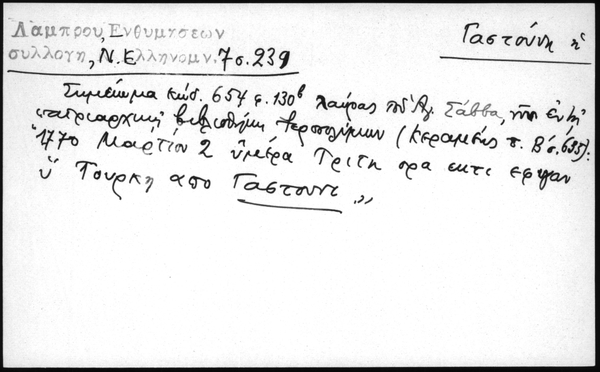 Λάμπρου, Ενθυμήσεων
συλλογή, Ν. Ελληνομν. 7 σ. 239
Γαστούνη ἡ
Σημείωμα κώδ. 654 φ. 130β Λαύρας τοῦ Ἁγ. Σάββα, νῦν ἐν τῇ
πατριαρχικῇ βιβλιοθήκῃ Ἱεροσολύμων (Κεραμεύς τ. Β' σ. 635):
"1770 Μαρτίου 2 ὑμέρα Τρίτη ορα εκτι εφιγαν
ὑ Τουρκη απο Γαστουνι"